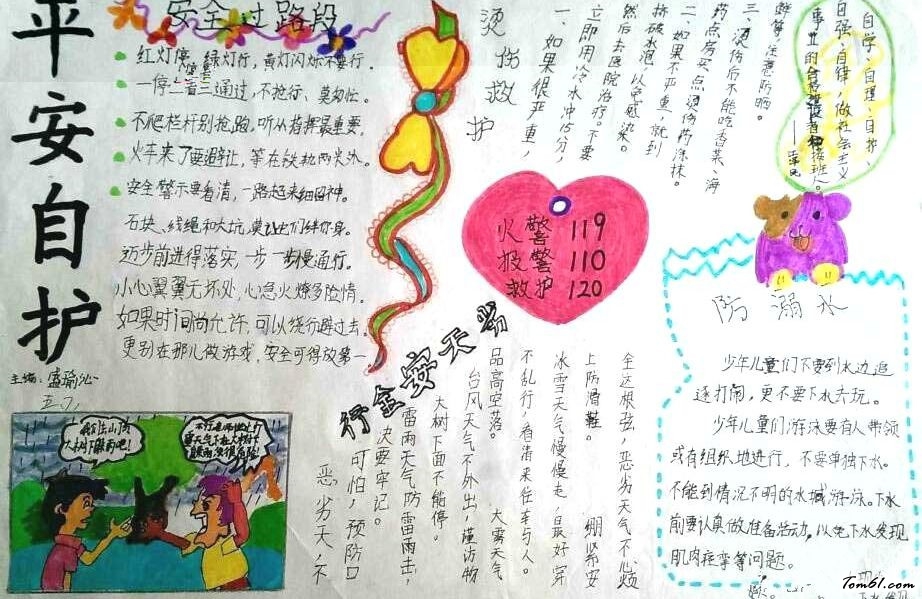 平安自护
主编：盛瑜沁
五.7.
安全过路段
红灯停，绿灯行，黄灯闪烁不要行。
一停二看三通过，不抢行、莫匆忙。
不爬栏杆别抢跑，听从指挥最重要。
火车来了要避让，等在铁轨两米外。
安全警示要看清，一路起来细留神。
石块、线绳和大坑，莫让它们绊你身。
迈步前进得落实，一步一步慢通行。
小心翼翼无坏处，心急火燎多险情。
如果时间尚允许，可以绕行避过去。
更别在那儿做游戏，安全可得放第一。
烫伤救护
一、如果很严重，
立即用冷水冲15分，
然后去医院治疗。不要
挤破水泡，以免感染。
二、如果不严重，就到
药点房买点烫伤药涂抹。
三、烫伤后不能吃香菜、海
鲜等，注意防晒。
自学、自理、自护、
自强、自律，做社会主义
事业的合格建设者和接班人。
火警 119
报警 110
救护 120
恶劣天气安全行
恶劣天，不
可怕，预防口
决要牢记。
雷雨天气防雷雨击，
大树下面不能停。
台风天气不外出，谨访物
品高空落。
大雾天气
不乱行，看清来往车与人。
冰雪天气慢慢走，最好穿
上防滑鞋。
绷紧安
全这根弦，恶劣天气不心烦
防溺水
少年儿童们不要到水边追
逐打闹，更不要下水去玩。
少年儿童们游泳要有人带领
或有组织地进行，不要单独下水。
不能到情况不明的水域游泳。下水
前要认真做准备活动，以免下水发现
肌肉痉挛等问题。
我们去山顶
大树下躲雨吧！
Tom61.com